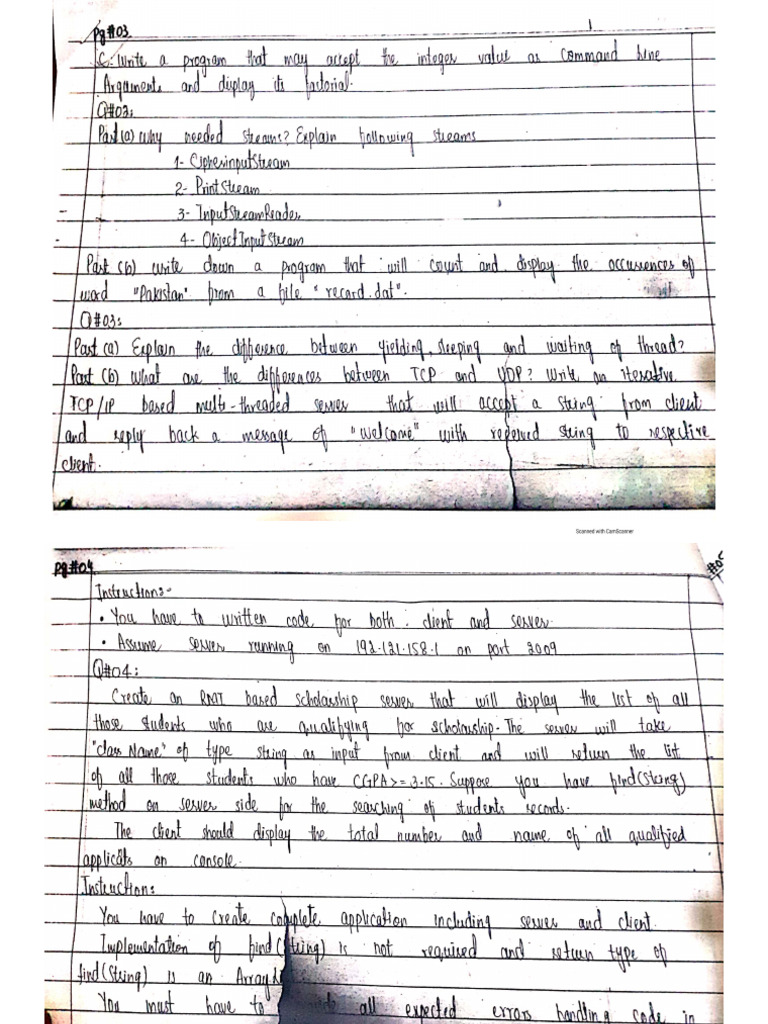 Pg#03
C. Write a program that may accept the integer value as Command Line
Arguments and display its factorial.
Q#02:
Part (a) Why needed streams? Explain following streams
1- CipherinputStream
2- PrintStream
3- InputStreamReader
4- ObjectInputStream
Part (b) write down a program that will count and display the occurrences of
word "Pakistan" from a file "record.dat".
Q#03:
Part (a) Explain the difference between yielding, sleeping and waiting of thread?
Part (b) What are the differences between TCP and UDP? Write an iterative
TCP/IP based multi-threaded server that will accept a string from client
and reply back a message of "welcome" with received string to respective
client.
Scanned with CamScanner
Pg#04
Instructions:-
• You have to written code for both : client and server.
• Assume server running on 192.121.158.1 on port 2009
Q#04:
Create an RMI based scholarship server that will display the list of all
those students who are qualifying for scholarship. The server will take
"class Name" of type string as input from client and will return the list
of all those students who have CGPA >= 3.15. Suppose you have find(String)
method on server side for the searching of students records.
The client should display the total number and name of all qualified
applicats on console.
Instruction:
You have to create complete application including server and client.
Implementation of find(String) is not required and return type of
find(String) is an
You must have to all expected errors handling code in